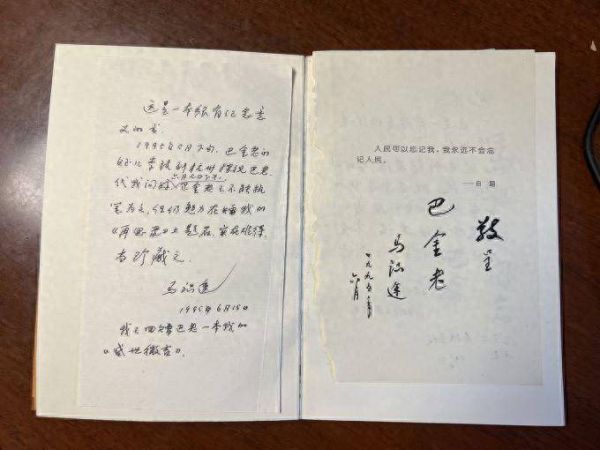 这是一本很有纪念意
义的书
巴金老的
侄儿李致到杭州探视巴老，
代我问好，巴金老已不能执
笔为文，但仍勉力在赠我的
《再思录》上题名，实在难得，
当珍藏之。
马识途
1995年6月15日
我也回赠巴老一本我的
《盛世微言》。
人民可以忘记我，我永远不会忘
记人民。
——自题
敬呈
巴金老
马识途
一九九五年
六月